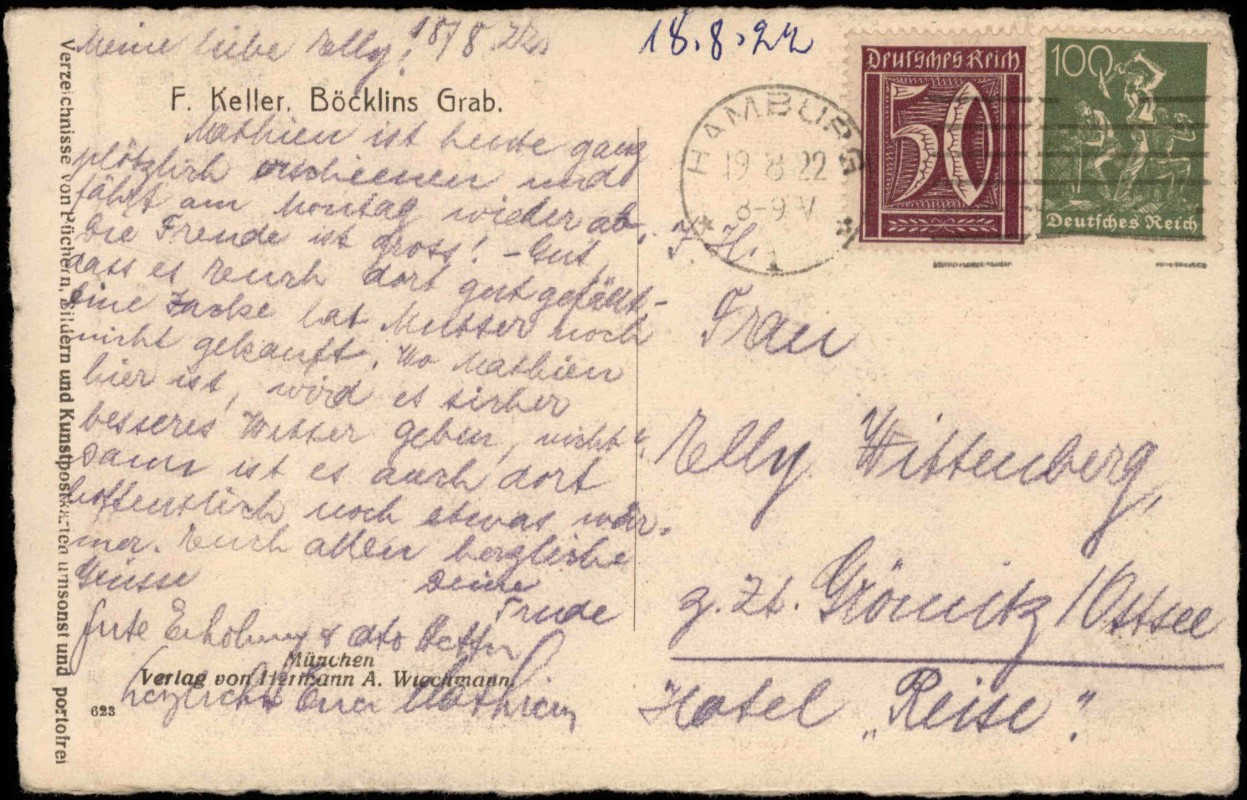 Meine liebe Elly! 18/8.22.
18.8.22
F. Keller. Böcklins Grab.
Mathien ist heute ganz
plötzlich erschienen und
fährt am Montag wieder ab.
Die Freude ist gross! – Gut,
dass es Euch dort gut gefällt,–
eine Jacke hat Mutter noch
nicht gekauft. Wo Mathien
hier ist, wird es sicher
besseres Wetter geben, nicht?
Dann ist es auch dort
hoffentlich noch etwas wär-
mer. Euch allen herzliche
Grüsse Deine
Trude
Gute Erholung & dto Wetter
herzlichst Euer Mathien
München
Verlag von Hermann A. Wiechmann.
623
Verzeichnisse von Büchern, Bildern und Kunstpostkarten umsonst und portofrei
HAMBURG
19.8.22
8-9 V
* 1 *
Deutsches Reich
50
100
Deutsches Reich
Frau
Elly Wittenberg,
z. Zt. Grömitz / Ostsee
Hotel „Reise".